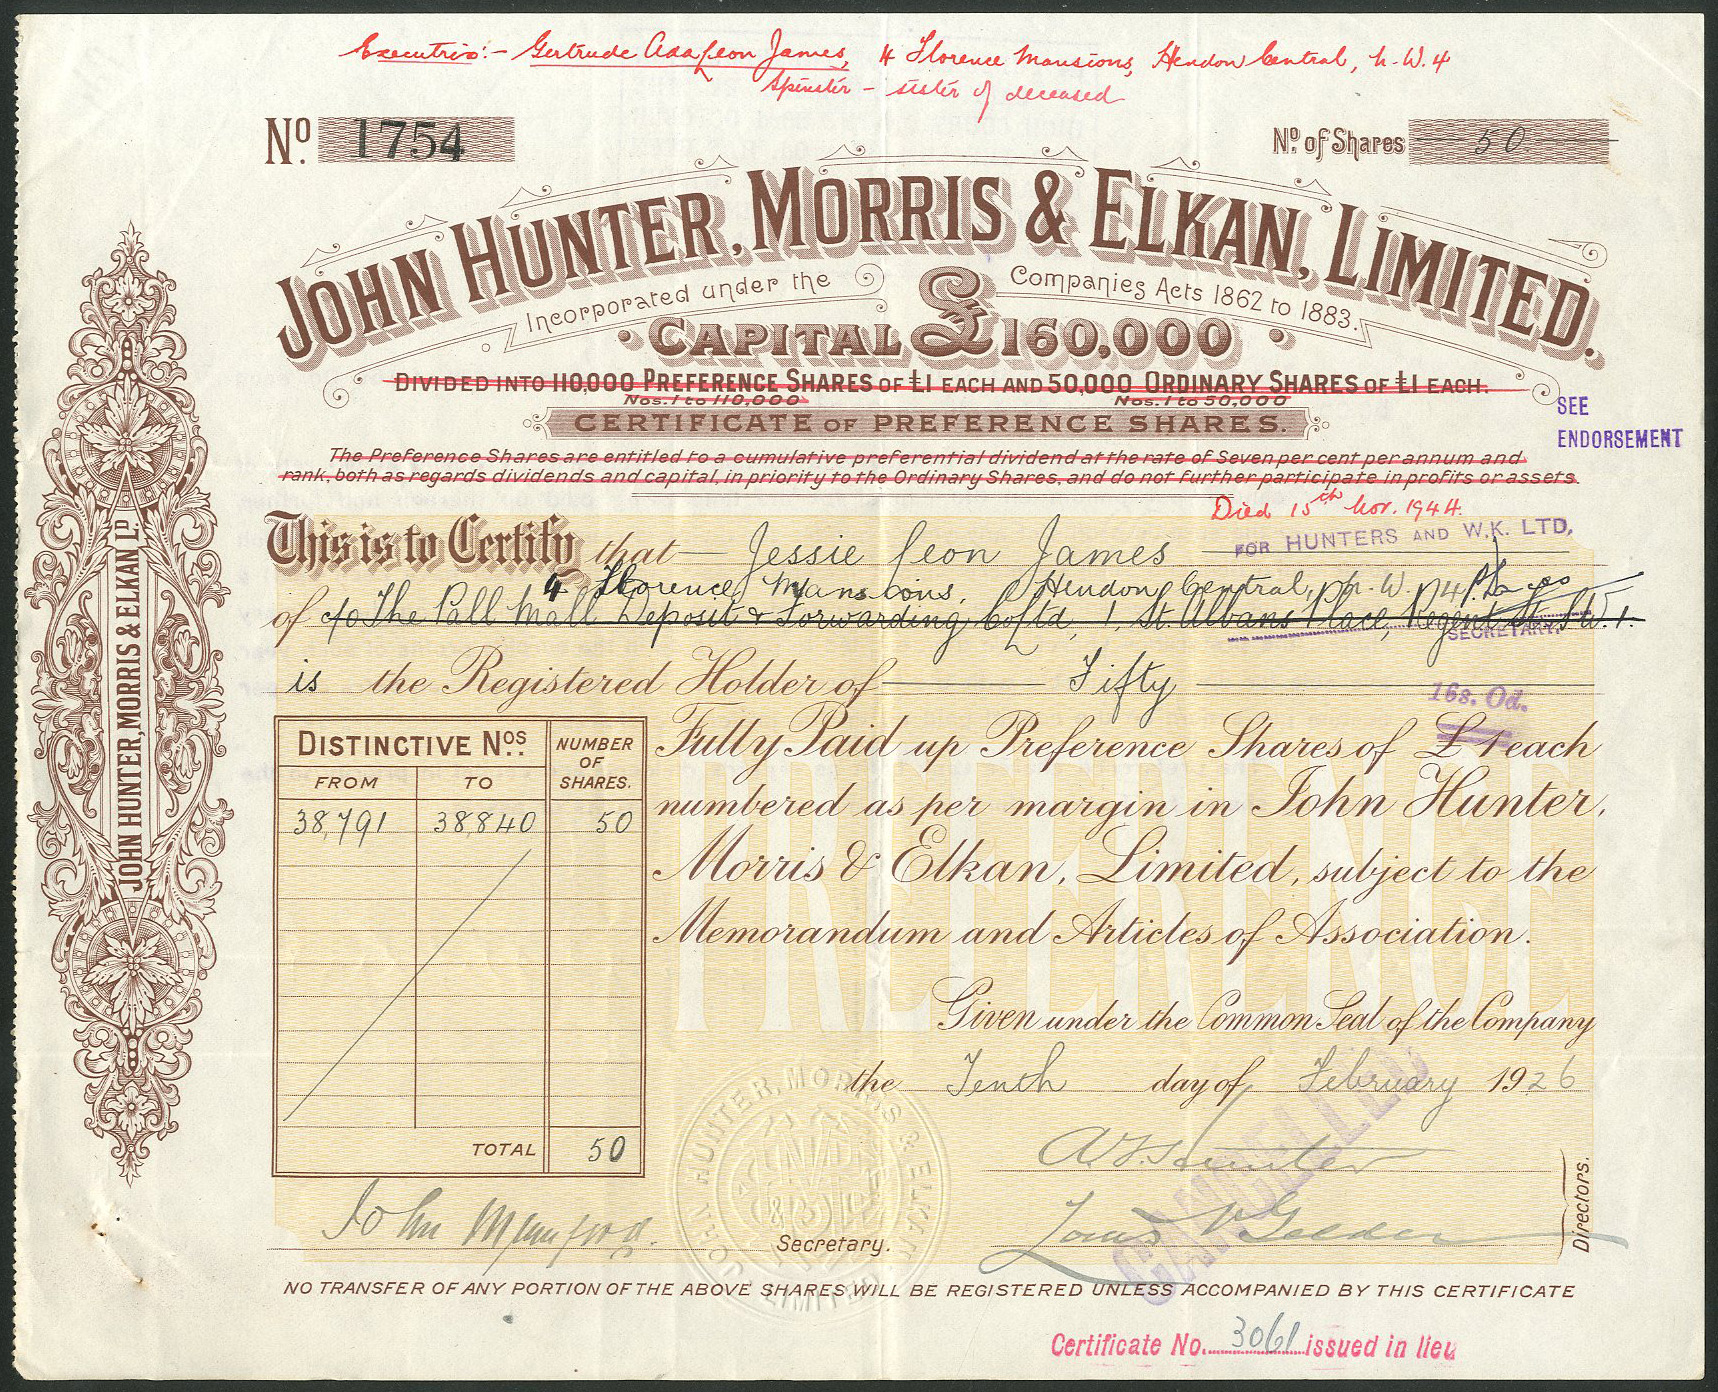 Executrix:- Gertrude Ada Leon James, 4 Florence Mansions, Hendon Central, N.W.4
Spinster - sister of deceased
No. 1754
No. of Shares 50
JOHN HUNTER, MORRIS & ELKAN, LIMITED.
Incorporated under the Companies Acts 1862 to 1883.
CAPITAL £160,000
DIVIDED INTO 110,000 PREFERENCE SHARES OF £1 EACH AND 50,000 ORDINARY SHARES OF £1 EACH.
Nos. 1 to 110,000 Nos. 1 to 50,000
SEE
ENDORSEMENT
CERTIFICATE OF PREFERENCE SHARES.
The Preference Shares are entitled to a cumulative preferential dividend at the rate of Seven per cent per annum and
rank, both as regards dividends and capital, in priority to the Ordinary Shares, and do not further participate in profits or assets.
Died 15th Nov. 1944.
FOR HUNTERS AND W.K. LTD,
This is to Certify that Jessie Leon James
4 Florence Mansions, Hendon Central, N.W.4
of c/o The Pall Mall Deposit & Forwarding Co Ltd, 1, St. Albans Place, Regent St. S.W.1.
SECRETARY.
is the Registered Holder of Fifty
16s. 0d.
Fully Paid up Preference Shares of £1 each
numbered as per margin in John Hunter,
Morris & Elkan, Limited, subject to the
Memorandum and Articles of Association.
DISTINCTIVE NOS. NUMBER OF SHARES.
FROM TO
38,791 38840 50
TOTAL 50
PREFERENCE
Given under the Common Seal of the Company
the Tenth day of February 1926
CANCELLED
Directors.
Secretary.
JOHN HUNTER, MORRIS & ELKAN LIMITED
NO TRANSFER OF ANY PORTION OF THE ABOVE SHARES WILL BE REGISTERED UNLESS ACCOMPANIED BY THIS CERTIFICATE
Certificate No. 3061 issued in lieu
JOHN HUNTER, MORRIS & ELKAN LD.